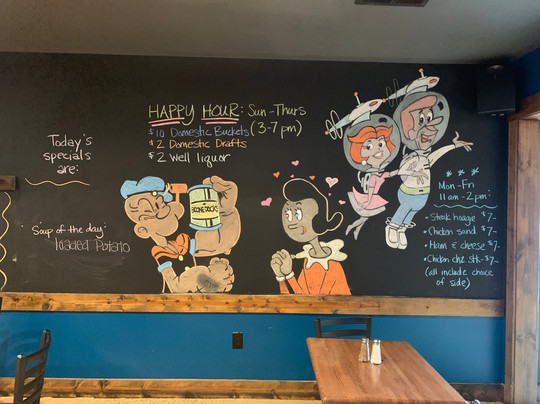 HAPPY HOUR: Sun-Thurs
(3-7pm)
$10 Domestic Buckets
$2 Domestic Drafts
$2 Well liquor
Today's
specials
are:
"Soup of the day"
loaded Potato
Mon-Fri
11am-2pm:
• Steak hoagie $7-
• Chicken sand $7-
• Ham & cheese $7-
• Chicken ch2 Stk-$7-
(all include choice
of side)